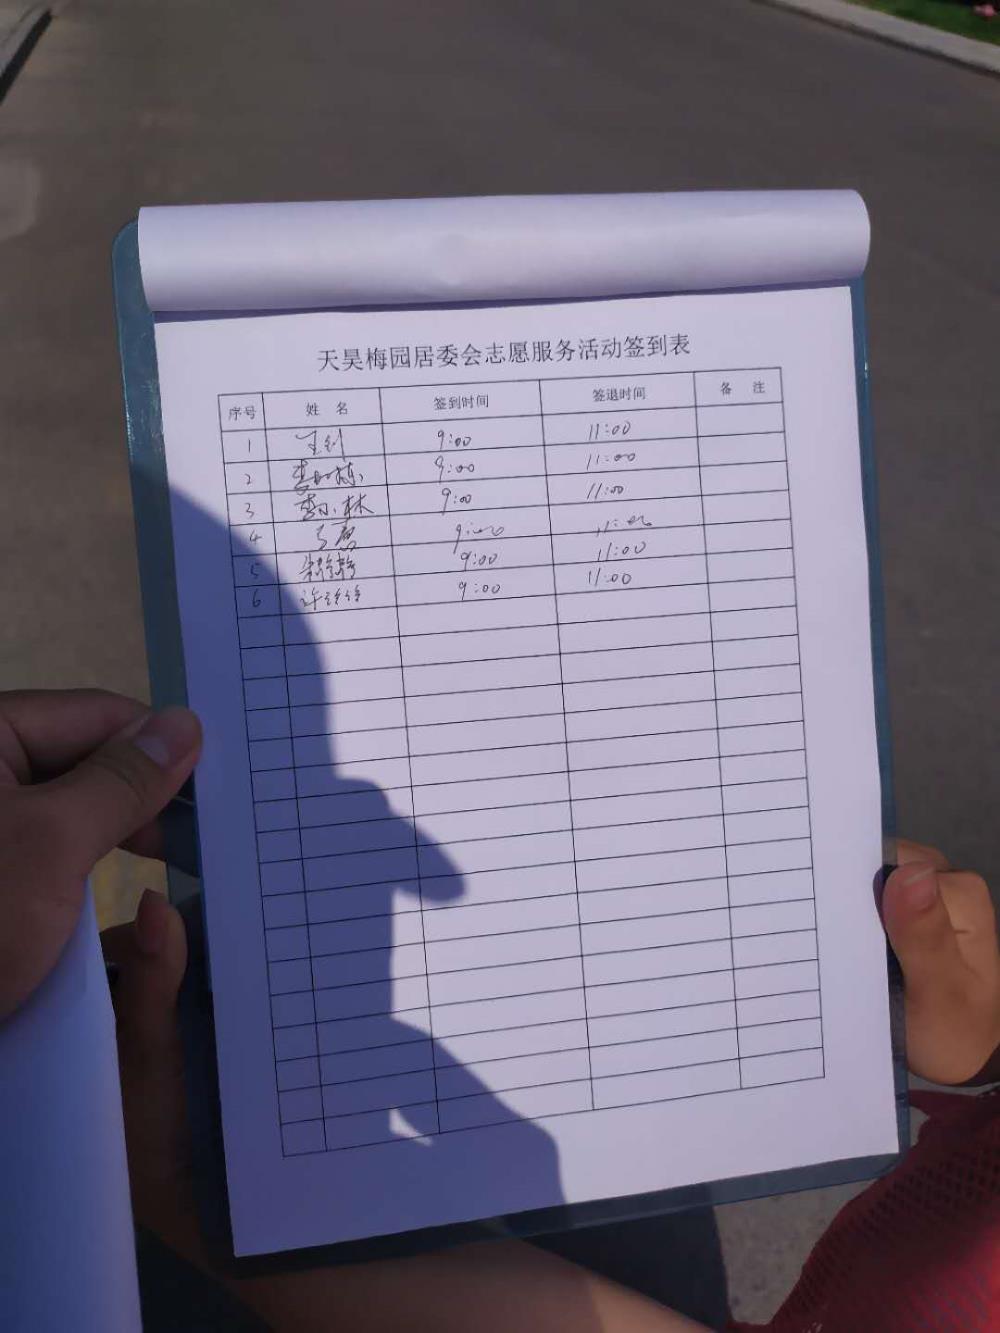 天昊梅园居委会志愿服务活动签到表
序号 姓 名 签到时间 签退时间 备 注
1 王钊 9:00 11:00
2 9:00 11:00
3 李小林 9:00 11:00
4 9:00 11:00
5 朱静静 9:00 11:00
6 许玲玲 9:00 11:00